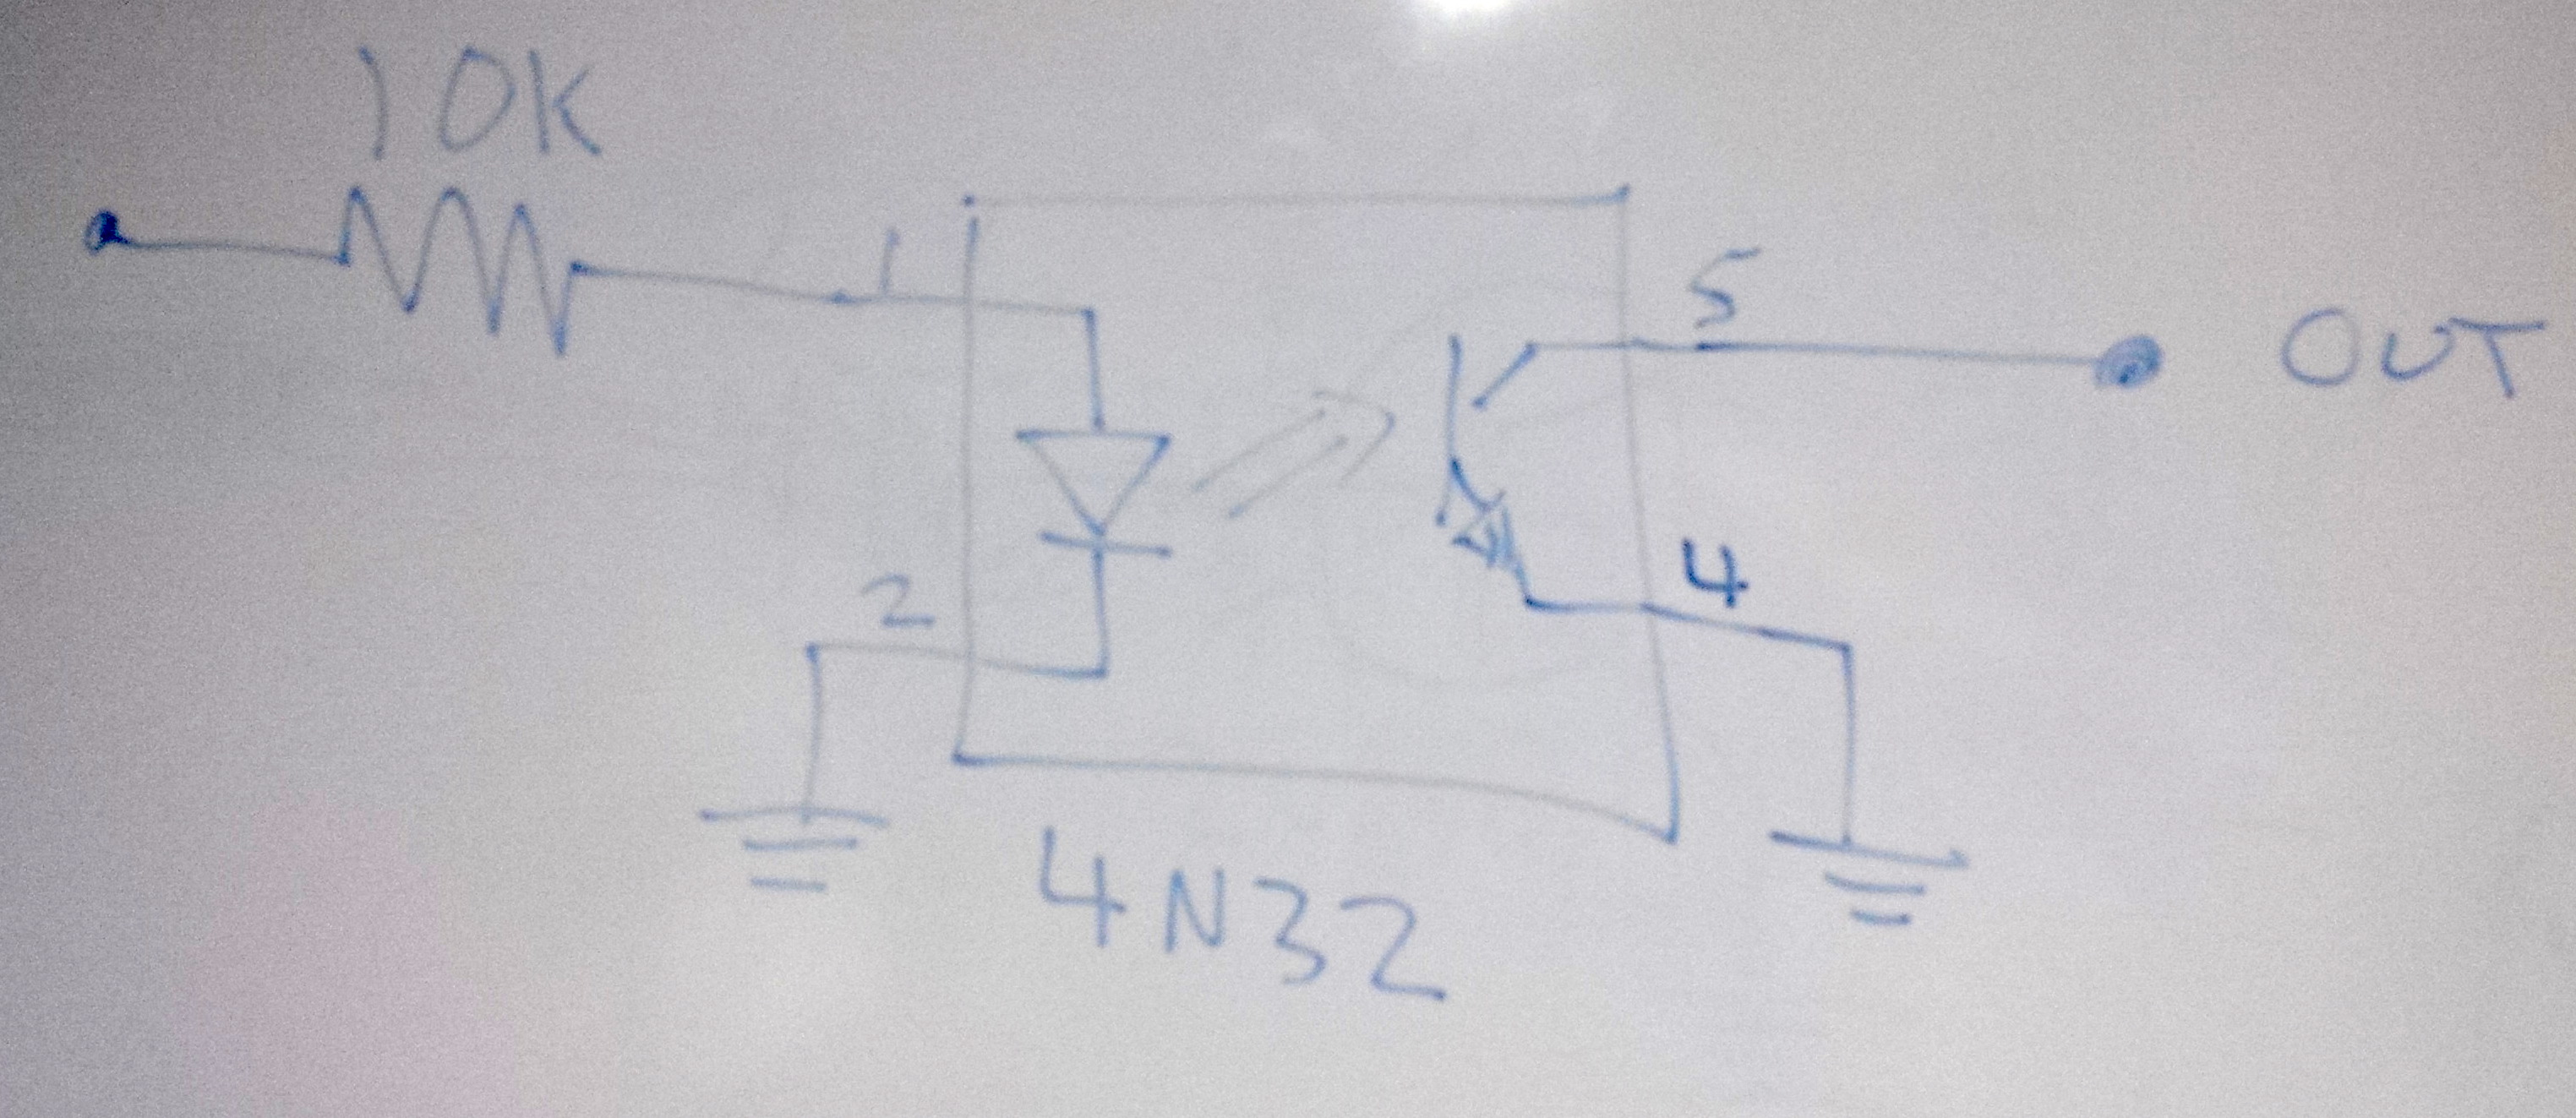 10K
1
5
OUT
2
4
4N32